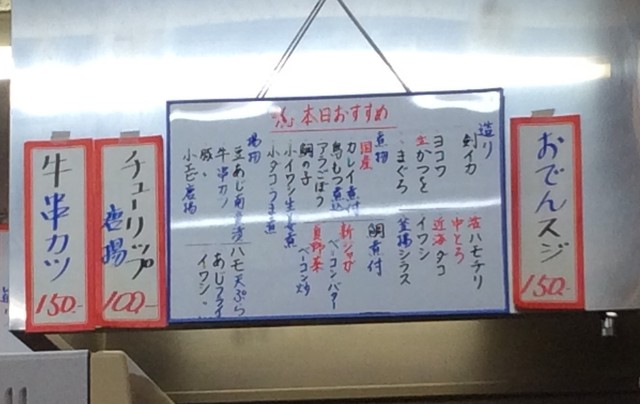 本日おすすめ
造り
剣イカ
ヨコワ
生かつを
まぐろ
活ハモチリ
中とろ
近海タコ
イワシ
釜揚シラス
煮物
国産
カレイ煮付
鳥もつ煮込
アラごぼう
鯛の子
小イワシ生姜煮
小タコつま煮
鯛煮付
新ジャガ
ベーコンバター
ベーコン炒
揚物
豆あじ南ばん漬
牛串カツ
豚〃
小エビ唐揚
ハモ天ぷら
あじフライ
イワシ〃
おでんスジ
150-
チューリップ
唐揚
100-
牛串カツ
150-